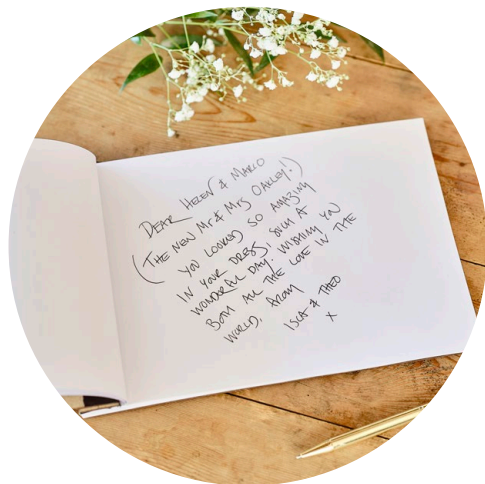 DEAR HELEN & MARCO
(THE NEW MR & MRS OAKLEY!)
YOU LOOKED SO AMAZING
IN YOUR DRESS, SUCH A
WONDERFUL DAY. WISHING YOU
BOTH ALL THE LOVE IN THE
WORLD, FROM
ISCA & THEO
X